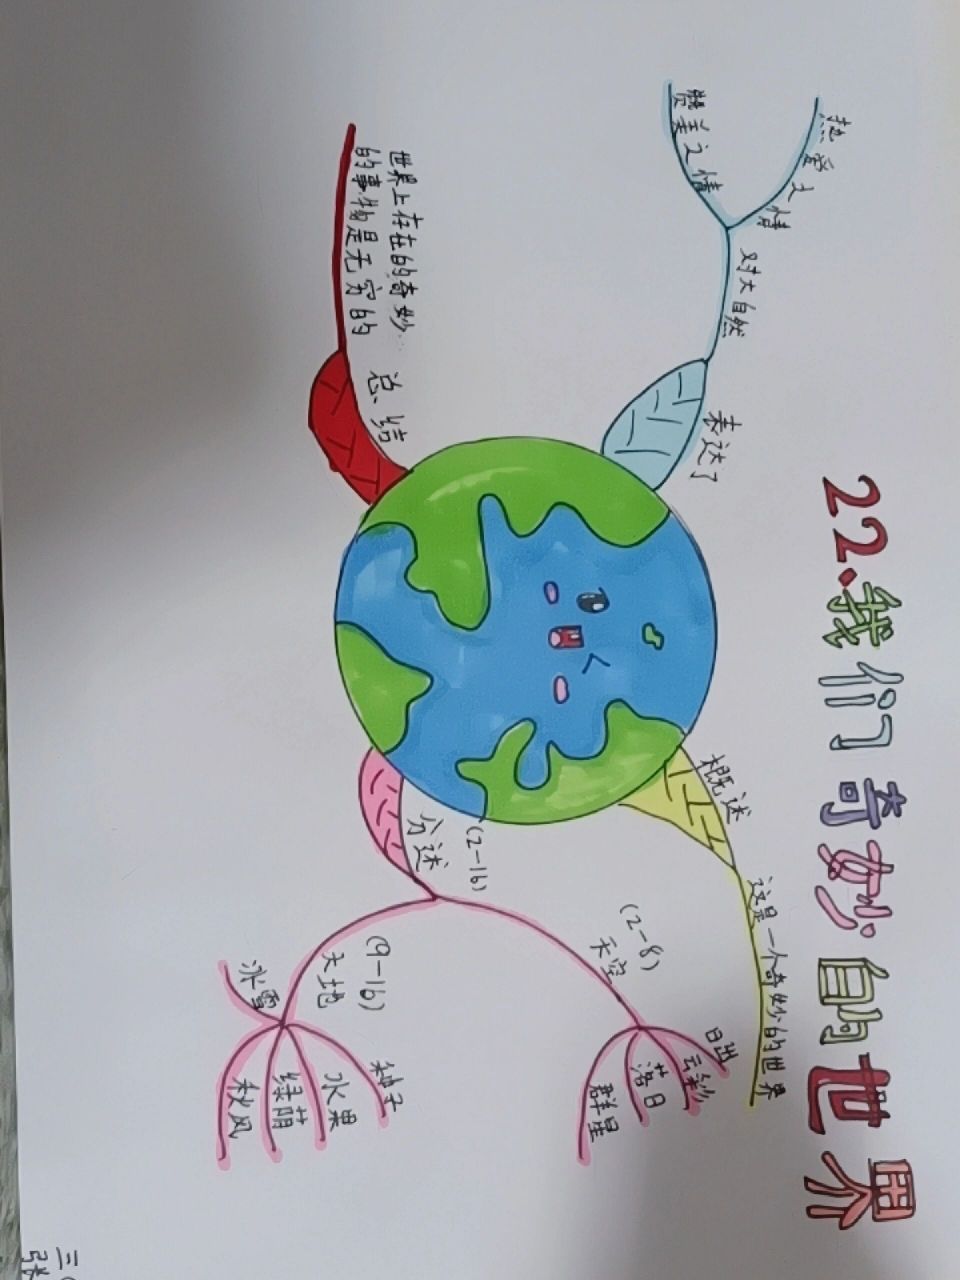 22.我们奇妙的世界
表达了
对大自然
热爱之情
赞美之情
概述
这是一个奇妙的世界
总结
世界上存在的奇妙
的事物是无穷的
分述
(2-16)
(2-8)
天空
日出
云彩
落日
群星
(9-16)
大地
种子
水果
绿荫
秋风
冰雪
三(
张